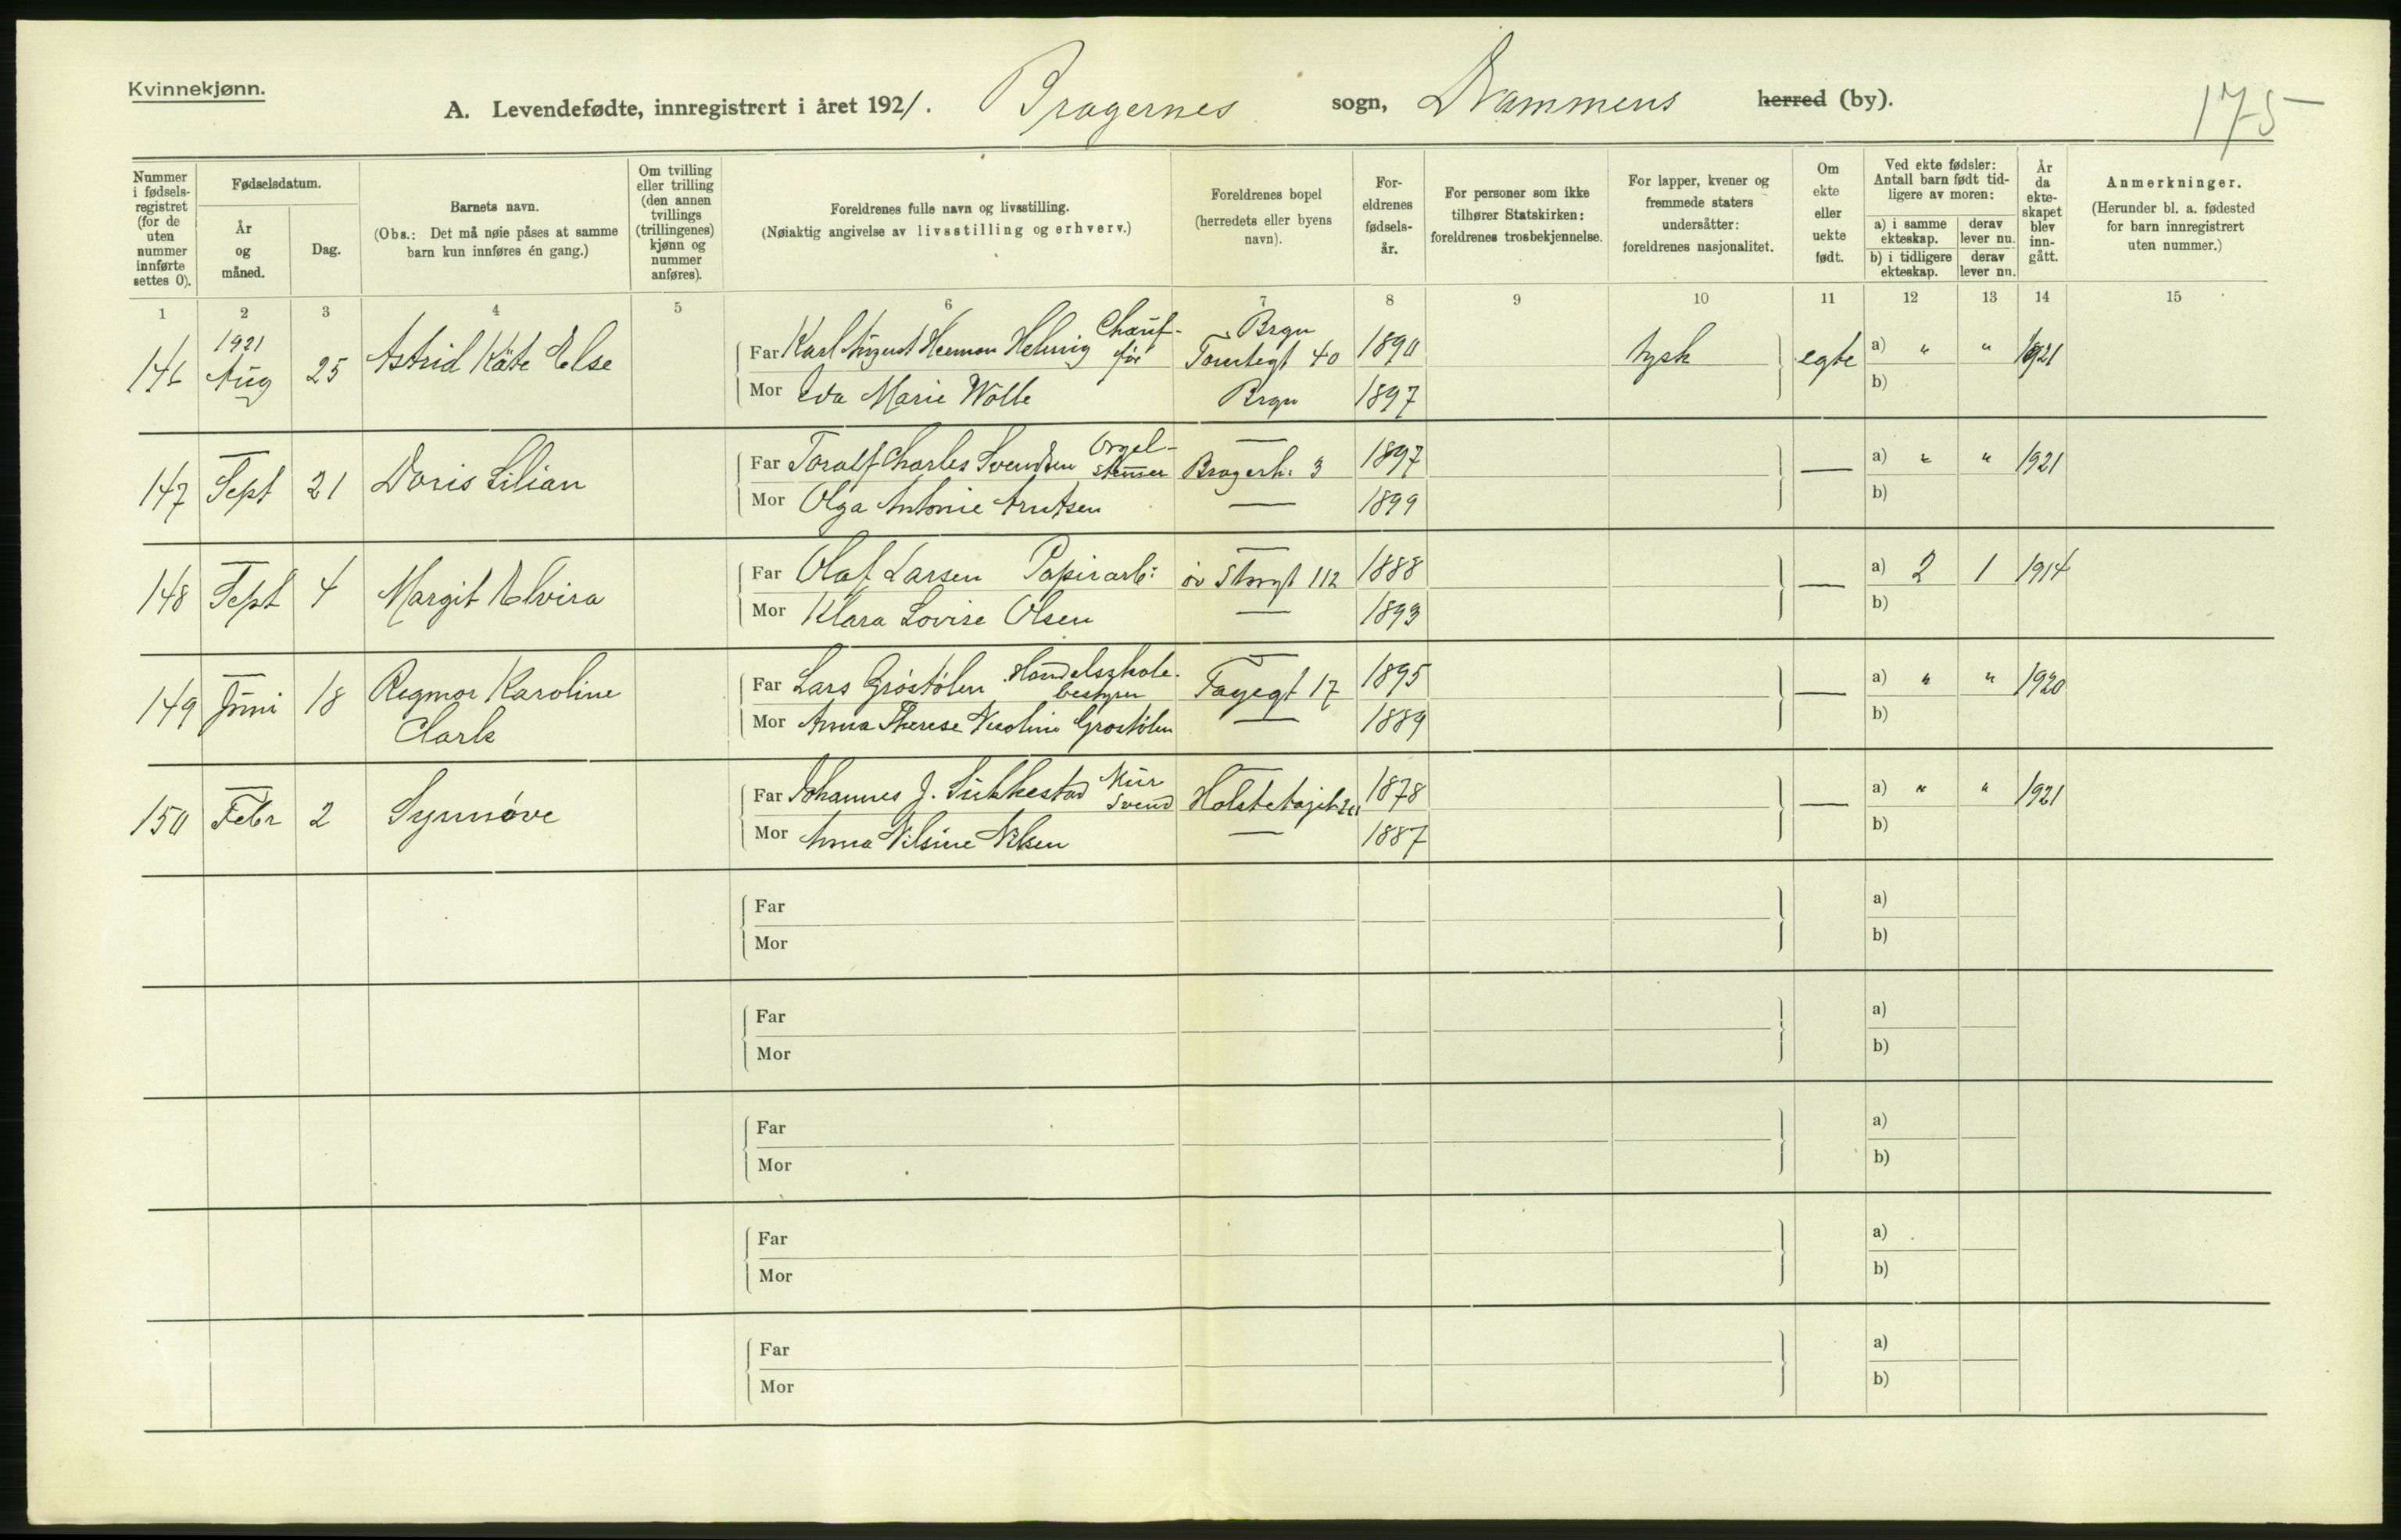 Kvinnekjønn.
A. Levendefødte, innregistrert i året 1921. Bragernes sogn, Drammens herred (by).
175
Nummer i fødselsregistret (for de uten nummer innførte settes 0).
Fødselsdatum.
År og måned.
Dag.
Barnets navn.
(Obs.: Det må nøie påses at samme barn kun innføres én gang.)
Om tvilling eller trilling (den annen tvillings (trillingenes) kjønn og nummer anføres).
Foreldrenes fulle navn og livsstilling.
(Nøiaktig angivelse av livsstilling og erhverv.)
Foreldrenes bopel
(herredets eller byens navn).
Foreldrenes fødselsår.
For personer som ikke tilhører Statskirken: foreldrenes trosbekjennelse.
For lapper, kvener og fremmede staters undersåtter: foreldrenes nasjonalitet.
Om ekte eller uekte født.
Ved ekte fødsler: Antall barn født tidligere av moren:
a) i samme ekteskap.
derav lever nu.
b) i tidligere ekteskap.
derav lever nu.
År da ekteskapet blev inngått.
Anmerkninger.
(Herunder bl. a. fødested for barn innregistrert uten nummer.)
1 2 3 4 5 6 7 8 9 10 11 12 13 14 15
146 1921 Aug 25 Astrid Käte Else
Far Karl August Herman Helmig Chauffør Brgn Tomtegt 40 1890 tysk egte a) " " 1921
Mor Eva Marie Wölle Brgn 1897 b)
147 Sept 21 Doris Lilian
Far Toralf Charles Svendsen Orgelstemmer Bragerh: 3 1897 — a) " " 1921
Mor Olga Antonie Arntsen — 1899 b)
148 Sept 4 Margit Elvira
Far Olaf Larsen Papirarb: øv Storgt 112 1888 — a) 2 1 1914
Mor Klara Lovise Olsen — 1893 b)
149 Juni 18 Regmor Karoline Clark
Far Lars Grøstølen Handelsskolebestyrer Fayegt 17 1895 — a) " " 1920
Mor Anna Therese Grostølen — 1889 b)
150 Febr 2 Synnøve
Far Johannes J. Sukkestad Mursvend 1878 — a) " " 1921
Mor Anna Nilsine Nilsen — 1887 b)
Far a)
Mor b)
Far a)
Mor b)
Far a)
Mor b)
Far a)
Mor b)
Far a)
Mor b)